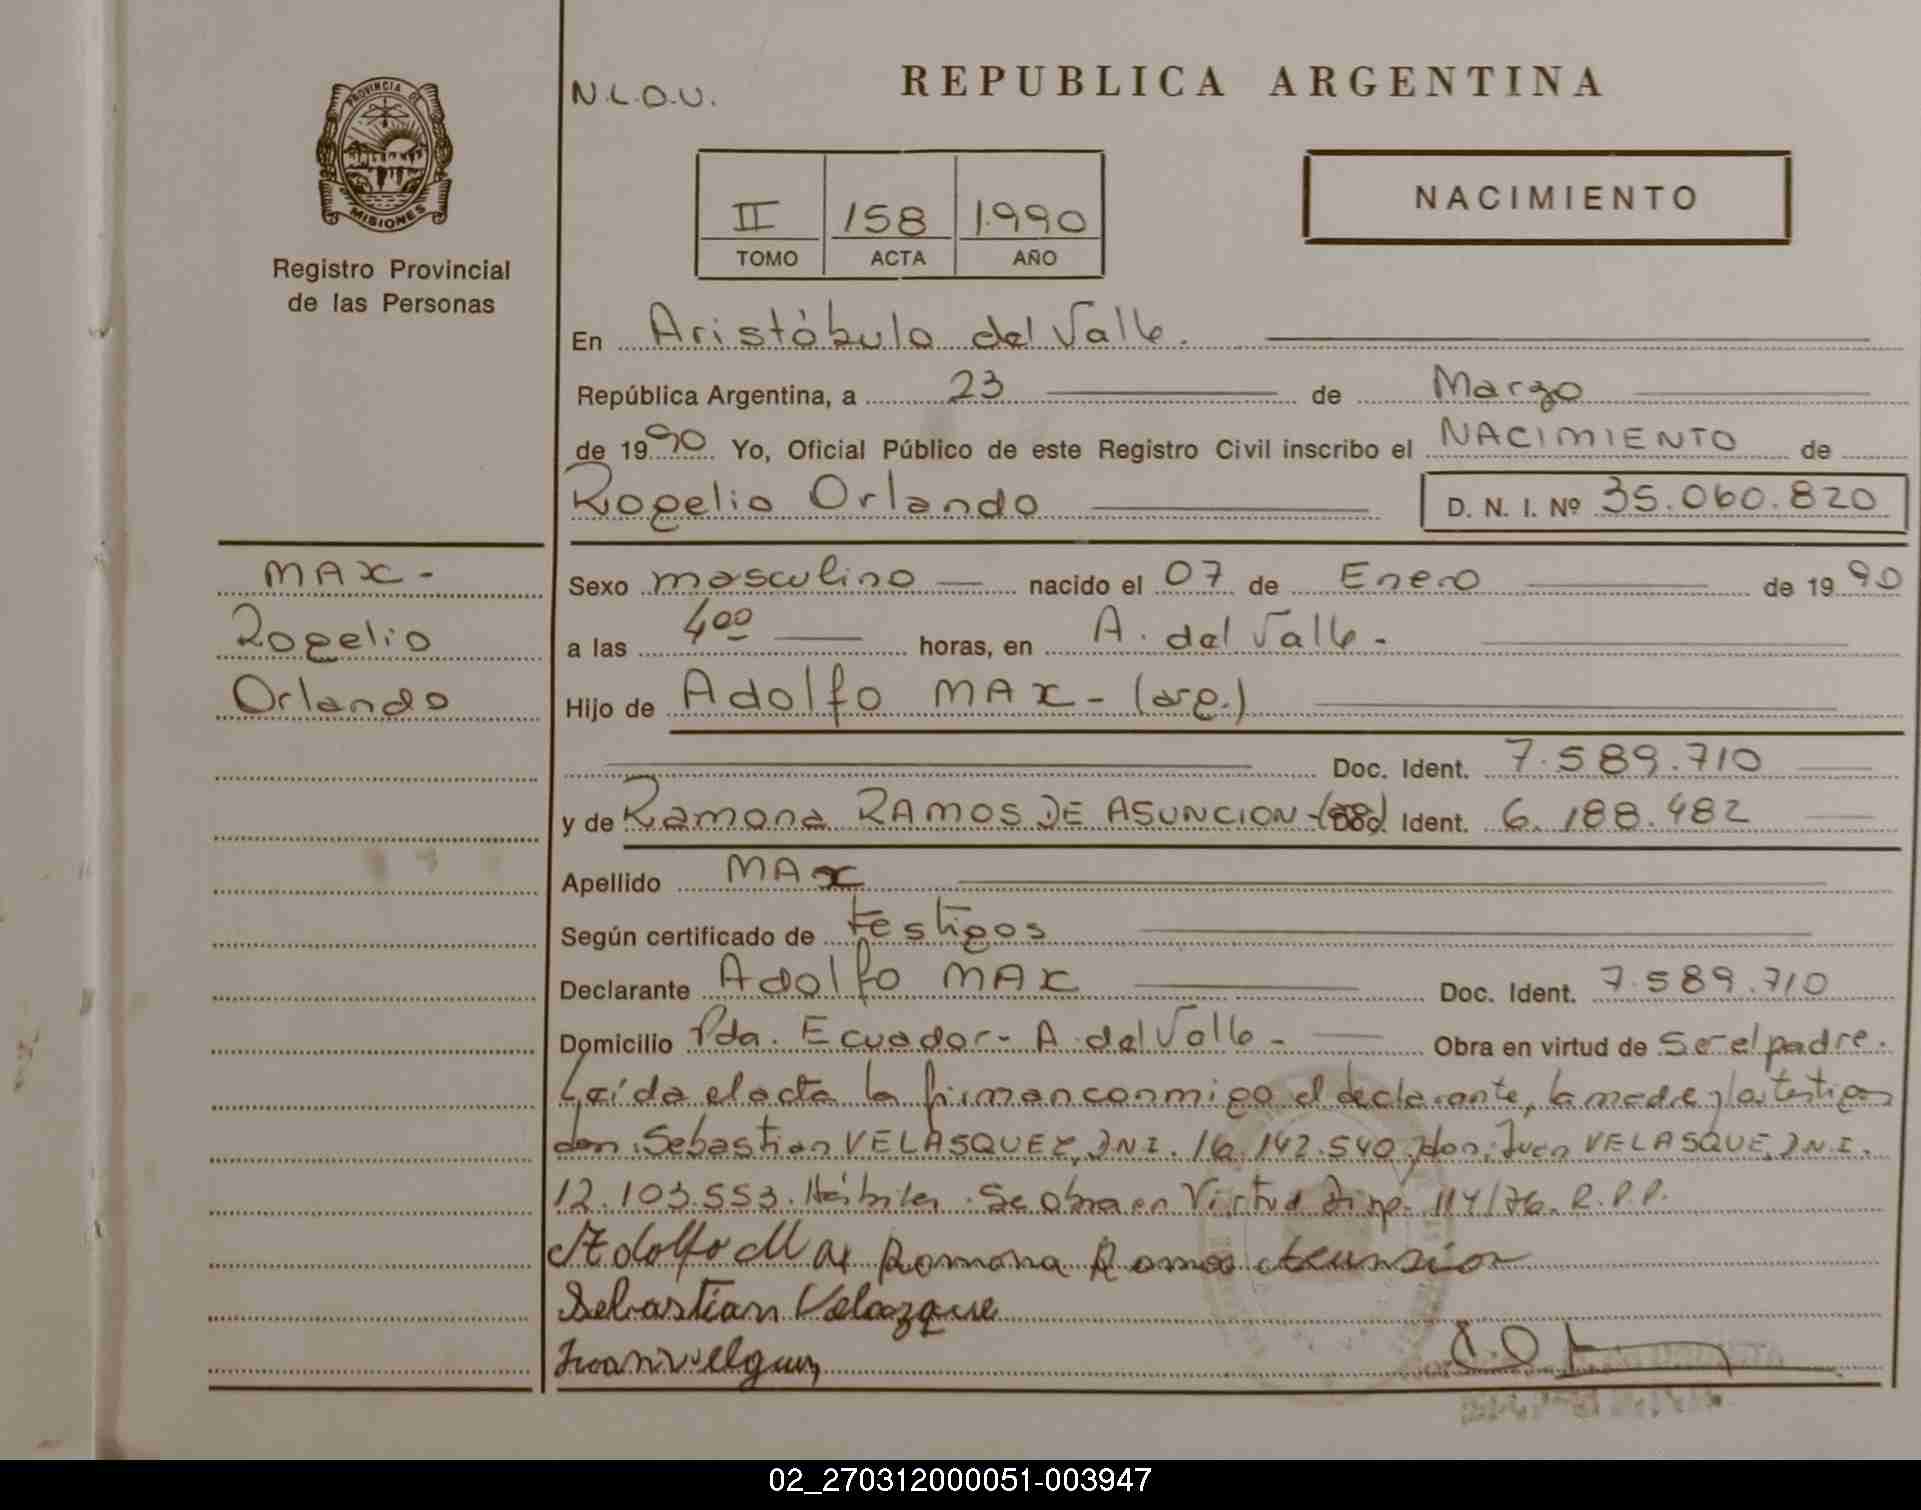 PROVINCIA DE
MISIONES
Registro Provincial
de las Personas
N.L.O.U.
REPUBLICA ARGENTINA
II 158 1.990
TOMO ACTA AÑO
NACIMIENTO
En Aristóbulo del Valle.
República Argentina, a 23 de Marzo
de 1990 Yo, Oficial Público de este Registro Civil inscribo el NACIMIENTO de
Rogelio Orlando D. N. I. Nº 35.060.820
MAX -
Rogelio
Orlando
Sexo masculino nacido el 07 de Enero de 1990
a las 4 00 horas, en A. del Valle -
Hijo de Adolfo MAX - (arg.)
Doc. Ident. 7.589.710
y de Ramona RAMOS DE ASUNCION - Doc. Ident. 6.188.482
Apellido MAX
Según certificado de testigos
Declarante Adolfo MAX Doc. Ident. 7.589.710
Domicilio Pda. Ecuador - A. del Valle - Obra en virtud de ser el padre.
Leída el acta la firman conmigo el declarante, la madre y los testigos
don: Sebastian VELASQUEZ, D.N.I. 16.142.540 y don: Juan VELASQUE, D.N.I.
12.103.553. Hábiles. Se obra en Virtud Disp. 114/76. R.P.P.
Adolfo Max Romona Ramos Acunsion
Sebastian Velazque
Juan
02_270312000051-003947